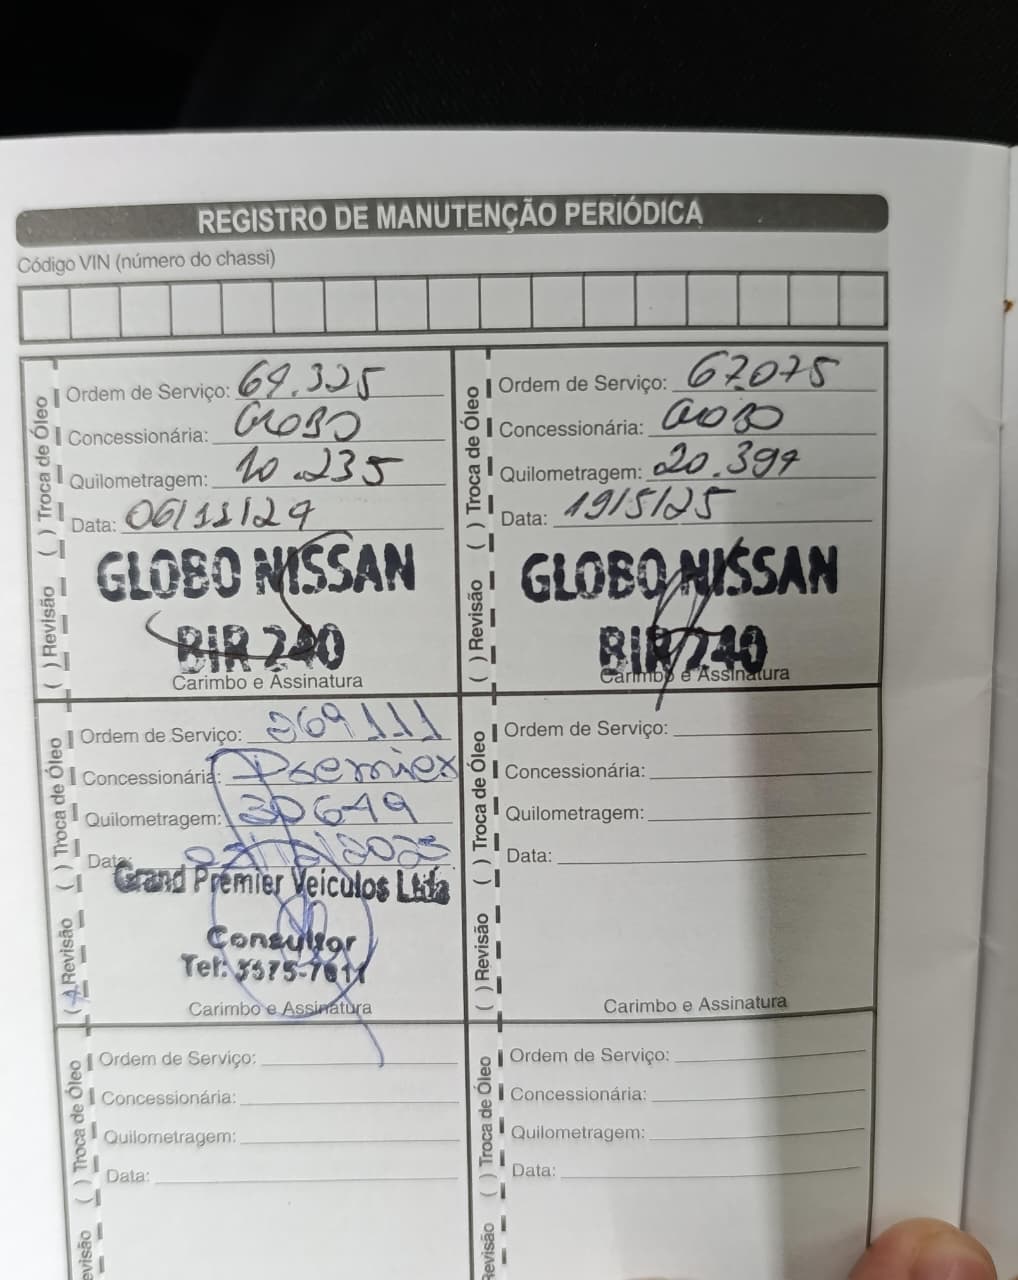 REGISTRO DE MANUTENÇÃO PERIÓDICA
Código VIN (número do chassi)
( ) Revisão ( ) Troca de Óleo
Ordem de Serviço: 64.325
Concessionária: GLOBO
Quilometragem: 10.235
Data: 06/11/24
GLOBO NISSAN
BIR 240
Carimbo e Assinatura
( ) Revisão ( ) Troca de Óleo
Ordem de Serviço: 67.075
Concessionária: GLOBO
Quilometragem: 20.394
Data: 19/5/25
GLOBO NISSAN
BIR 240
Carimbo e Assinatura
Revisão ( ) Troca de Óleo
Ordem de Serviço: 269111
Concessionária: Premier
Quilometragem: 30649
Data: 2025
Grand Premier Veículos Ltda
Consultor
Tel: 5575-7011
Carimbo e Assinatura
( ) Revisão ( ) Troca de Óleo
Ordem de Serviço:
Concessionária:
Quilometragem:
Data:
Carimbo e Assinatura
evisão ( ) Troca de Óleo
Ordem de Serviço:
Concessionária:
Quilometragem:
Data:
Revisão ( ) Troca de Óleo
Ordem de Serviço:
Concessionária:
Quilometragem:
Data: